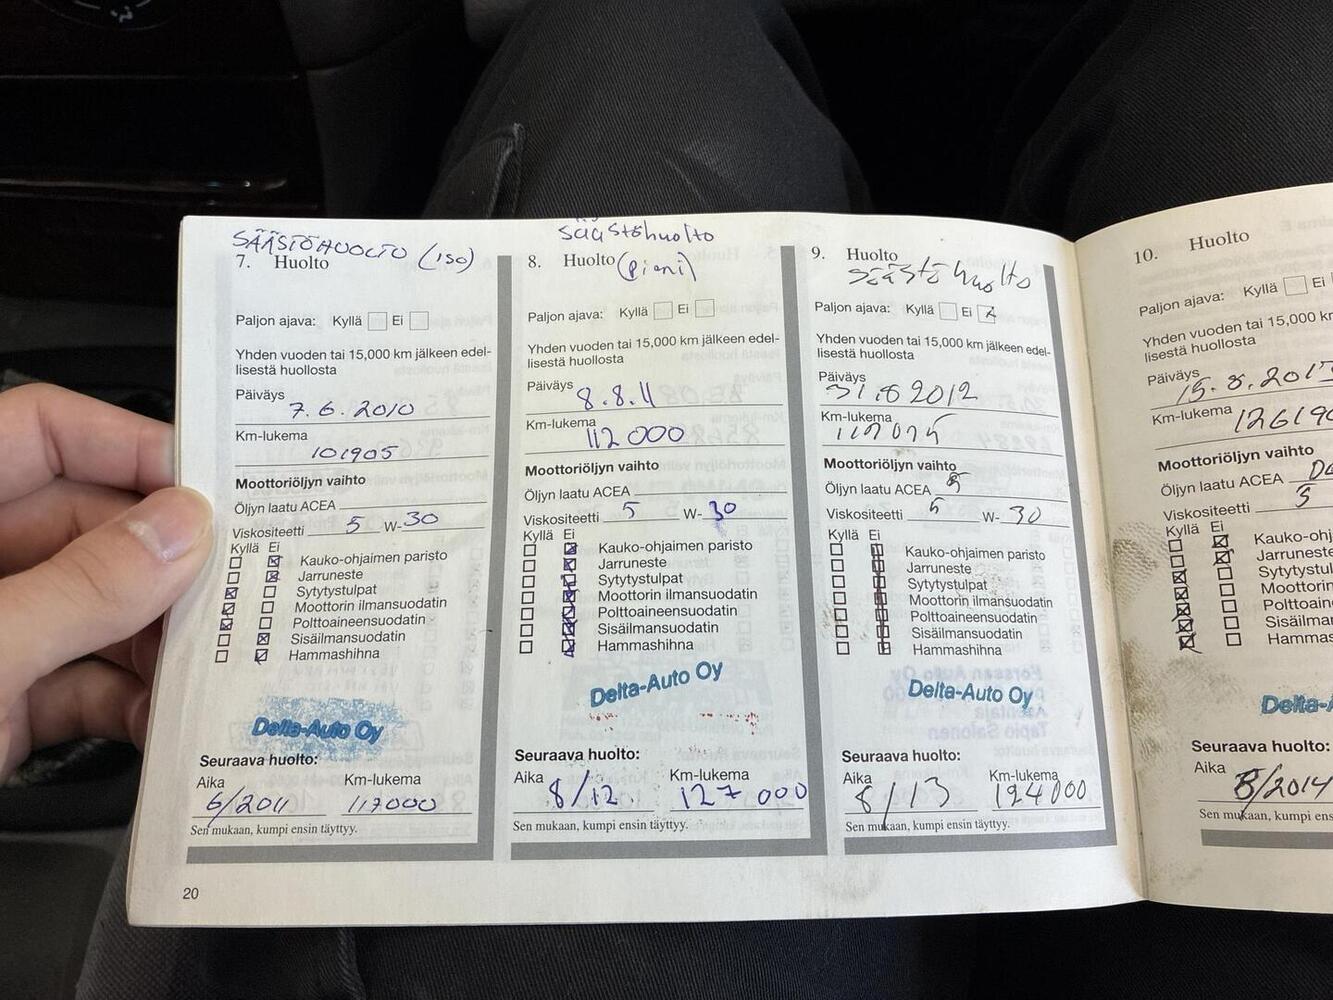 SÄÄSTÖHUOLTO (ISO)
7. Huolto
Paljon ajava: Kyllä Ei
Yhden vuoden tai 15,000 km jälkeen edel-
lisestä huollosta
Päiväys
7.6.2010
Km-lukema
101905
Moottoriöljyn vaihto
Öljyn laatu ACEA
Viskositeetti 5 W-30
Kyllä Ei
Kauko-ohjaimen paristo
Jarruneste
Sytytystulpat
Moottorin ilmansuodatin
Polttoaineensuodatin
Sisäilmansuodatin
Hammashihna
Delta-Auto Oy
Seuraava huolto:
Aika Km-lukema
6/2011 117000
Sen mukaan, kumpi ensin täyttyy.
20
Säästöhuolto
8. Huolto (pieni)
Paljon ajava: Kyllä Ei
Yhden vuoden tai 15,000 km jälkeen edel-
lisestä huollosta
Päiväys
8.8.11
Km-lukema
112000
Moottoriöljyn vaihto
Öljyn laatu ACEA
Viskositeetti 5 W-30
Kyllä Ei
Kauko-ohjaimen paristo
Jarruneste
Sytytystulpat
Moottorin ilmansuodatin
Polttoaineensuodatin
Sisäilmansuodatin
Hammashihna
Delta-Auto Oy
Seuraava huolto:
Aika Km-lukema
8/12 127 000
Sen mukaan, kumpi ensin täyttyy.
9. Huolto
säästöhuolto
Paljon ajava: Kyllä Ei
Yhden vuoden tai 15,000 km jälkeen edel-
lisestä huollosta
Päiväys
31.8 2012
Km-lukema
Moottoriöljyn vaihto
Öljyn laatu ACEA
Viskositeetti 5 W-30
Kyllä Ei
Kauko-ohjaimen paristo
Jarruneste
Sytytystulpat
Moottorin ilmansuodatin
Polttoaineensuodatin
Sisäilmansuodatin
Hammashihna
Delta-Auto Oy
Seuraava huolto:
Aika Km-lukema
8/13 124000
Sen mukaan, kumpi ensin täyttyy.
10. Huolto
Paljon ajava: Kyllä Ei
Yhden vuoden tai 15,000 km
lisestä huollosta
Päiväys 15.8.2013
Km-lukema 12619
Moottoriöljyn vaihto
Öljyn laatu ACEA
Viskositeetti 5
Kyllä Ei
Kauko-ohj
Jarruneste
Sytytystul
Moottorin
Polttoain
Sisäilma
Hammas
Delta-
Seuraava huolto:
Aika
8/2014
Sen mukaan, kumpi ens